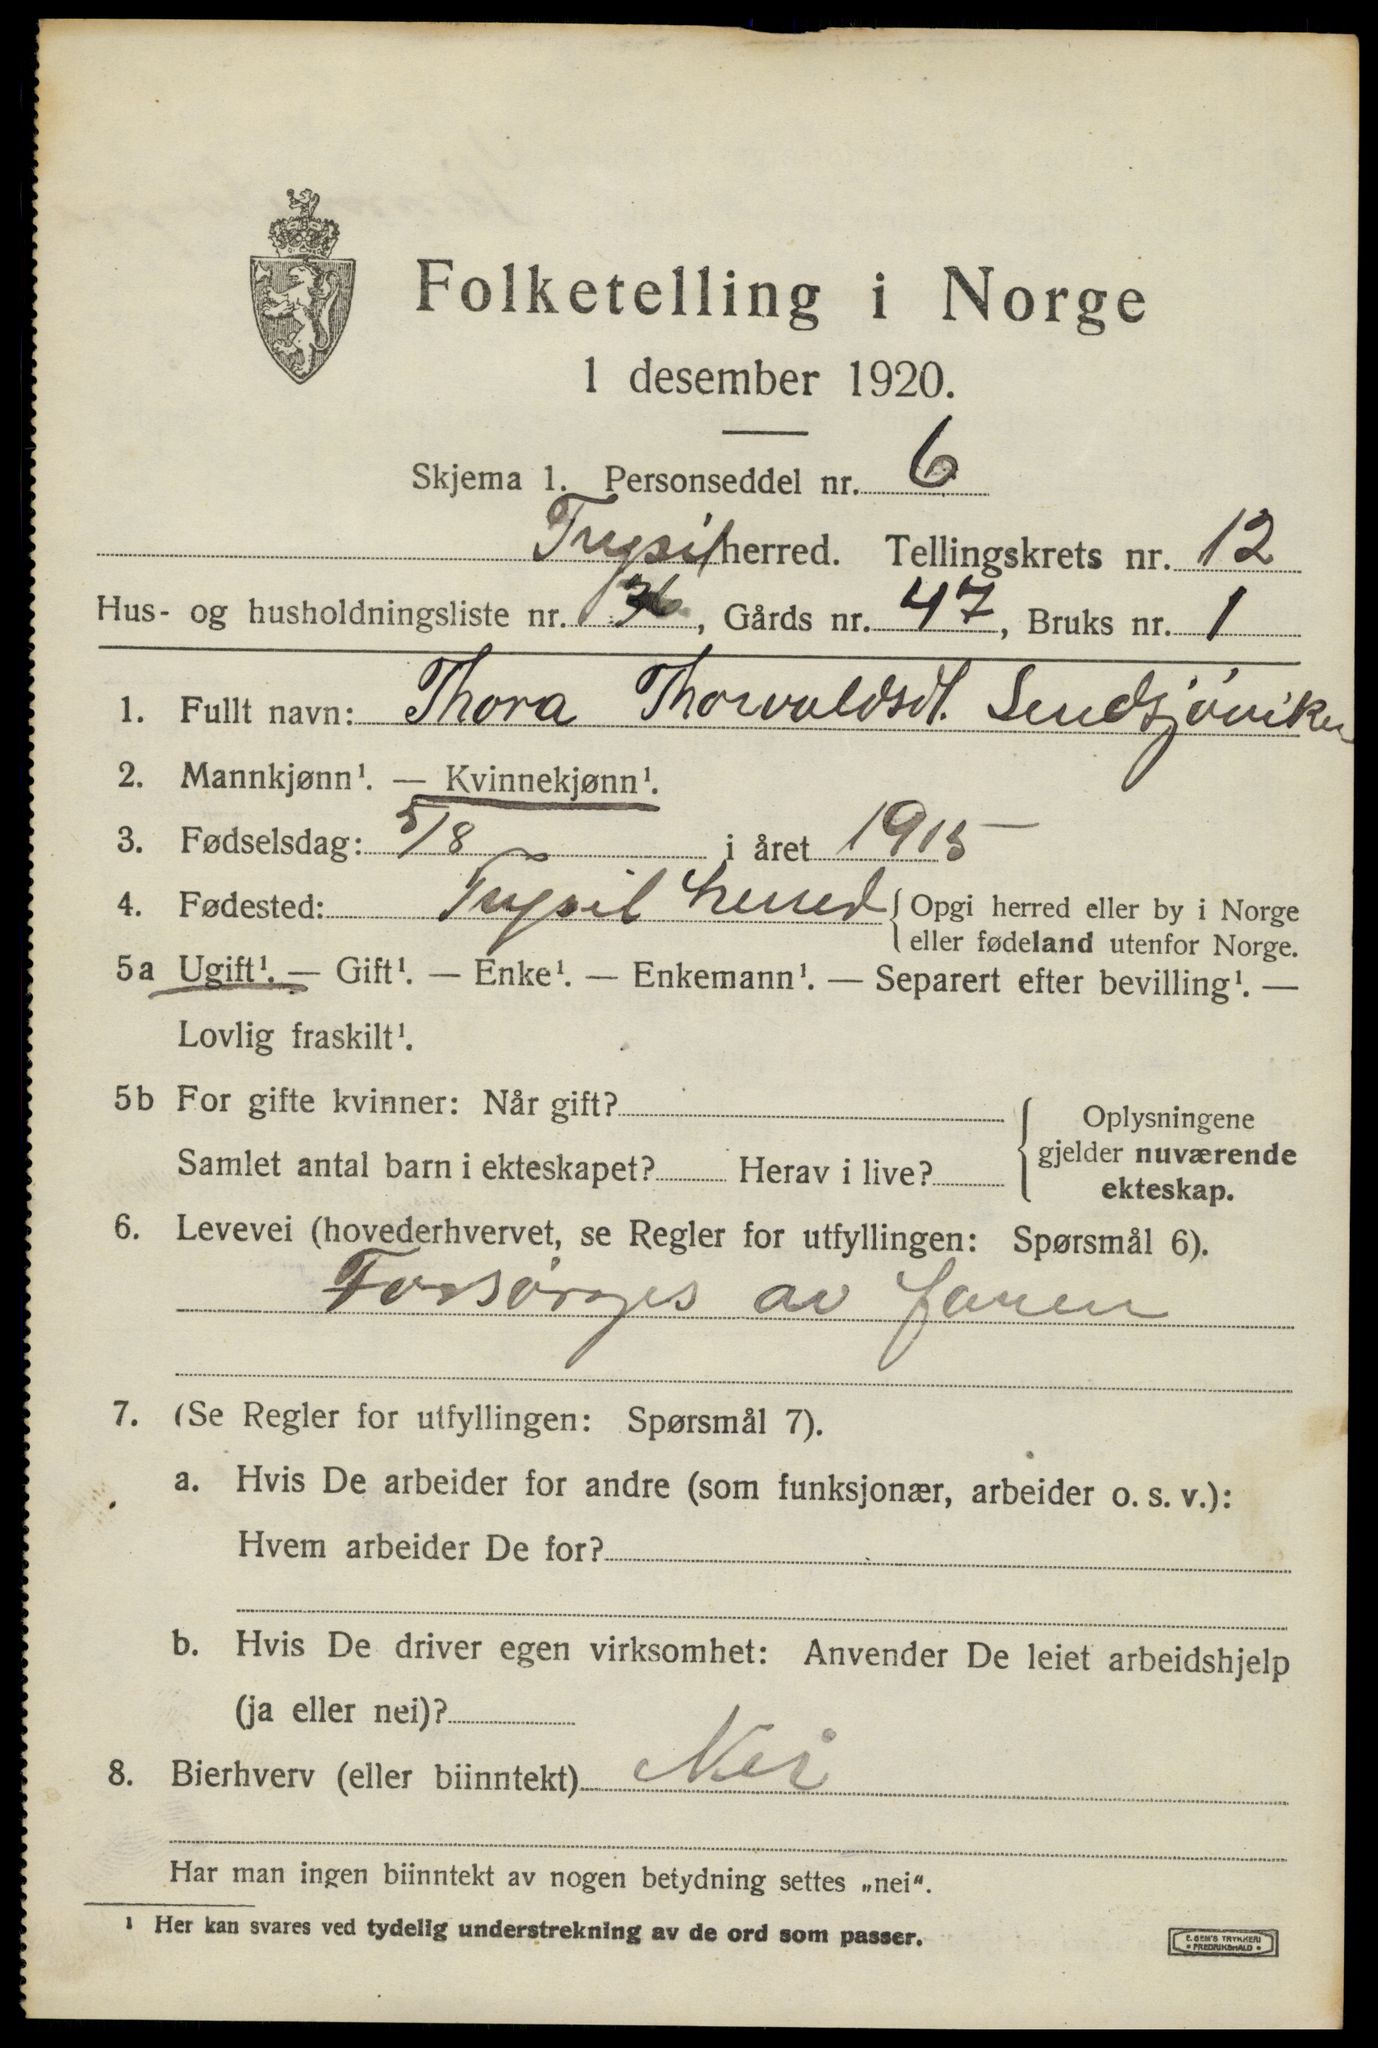 Folketelling i Norge
1 desember 1920.
Skjema 1. Personseddel nr. 6
Trysil herred. Tellingskrets nr. 12
Hus- og husholdningsliste nr. 36, Gårds nr. 47, Bruks nr. 1
1. Fullt navn: Thora Thorvaldsdt. Sendsjøviken
2. Mannkjønn¹. — Kvinnekjønn¹.
3. Fødselsdag: 5/8 i året 1915
4. Fødested: Trysil herred { Opgi herred eller by i Norge
eller fødeland utenfor Norge.
5a Ugift¹. — Gift¹. — Enke¹. — Enkemann¹. — Separert efter bevilling¹. —
Lovlig fraskilt¹.
5b For gifte kvinner: Når gift?
Samlet antal barn i ekteskapet? Herav i live?
{ Oplysningene
gjelder nuværende
ekteskap.
6. Levevei (hovederhvervet, se Regler for utfyllingen: Spørsmål 6).
Forsörges av faren
7. (Se Regler for utfyllingen: Spørsmål 7).
a. Hvis De arbeider for andre (som funksjonær, arbeider o. s. v.):
Hvem arbeider De for?
b. Hvis De driver egen virksomhet: Anvender De leiet arbeidshjelp
(ja eller nei)?
8. Bierhverv (eller biinntekt) Nei
Har man ingen biinntekt av nogen betydning settes „nei“.
¹ Her kan svares ved tydelig understrekning av de ord som passer.
E. SEM'S TRYKKERI
• FREDRIKSHALD •